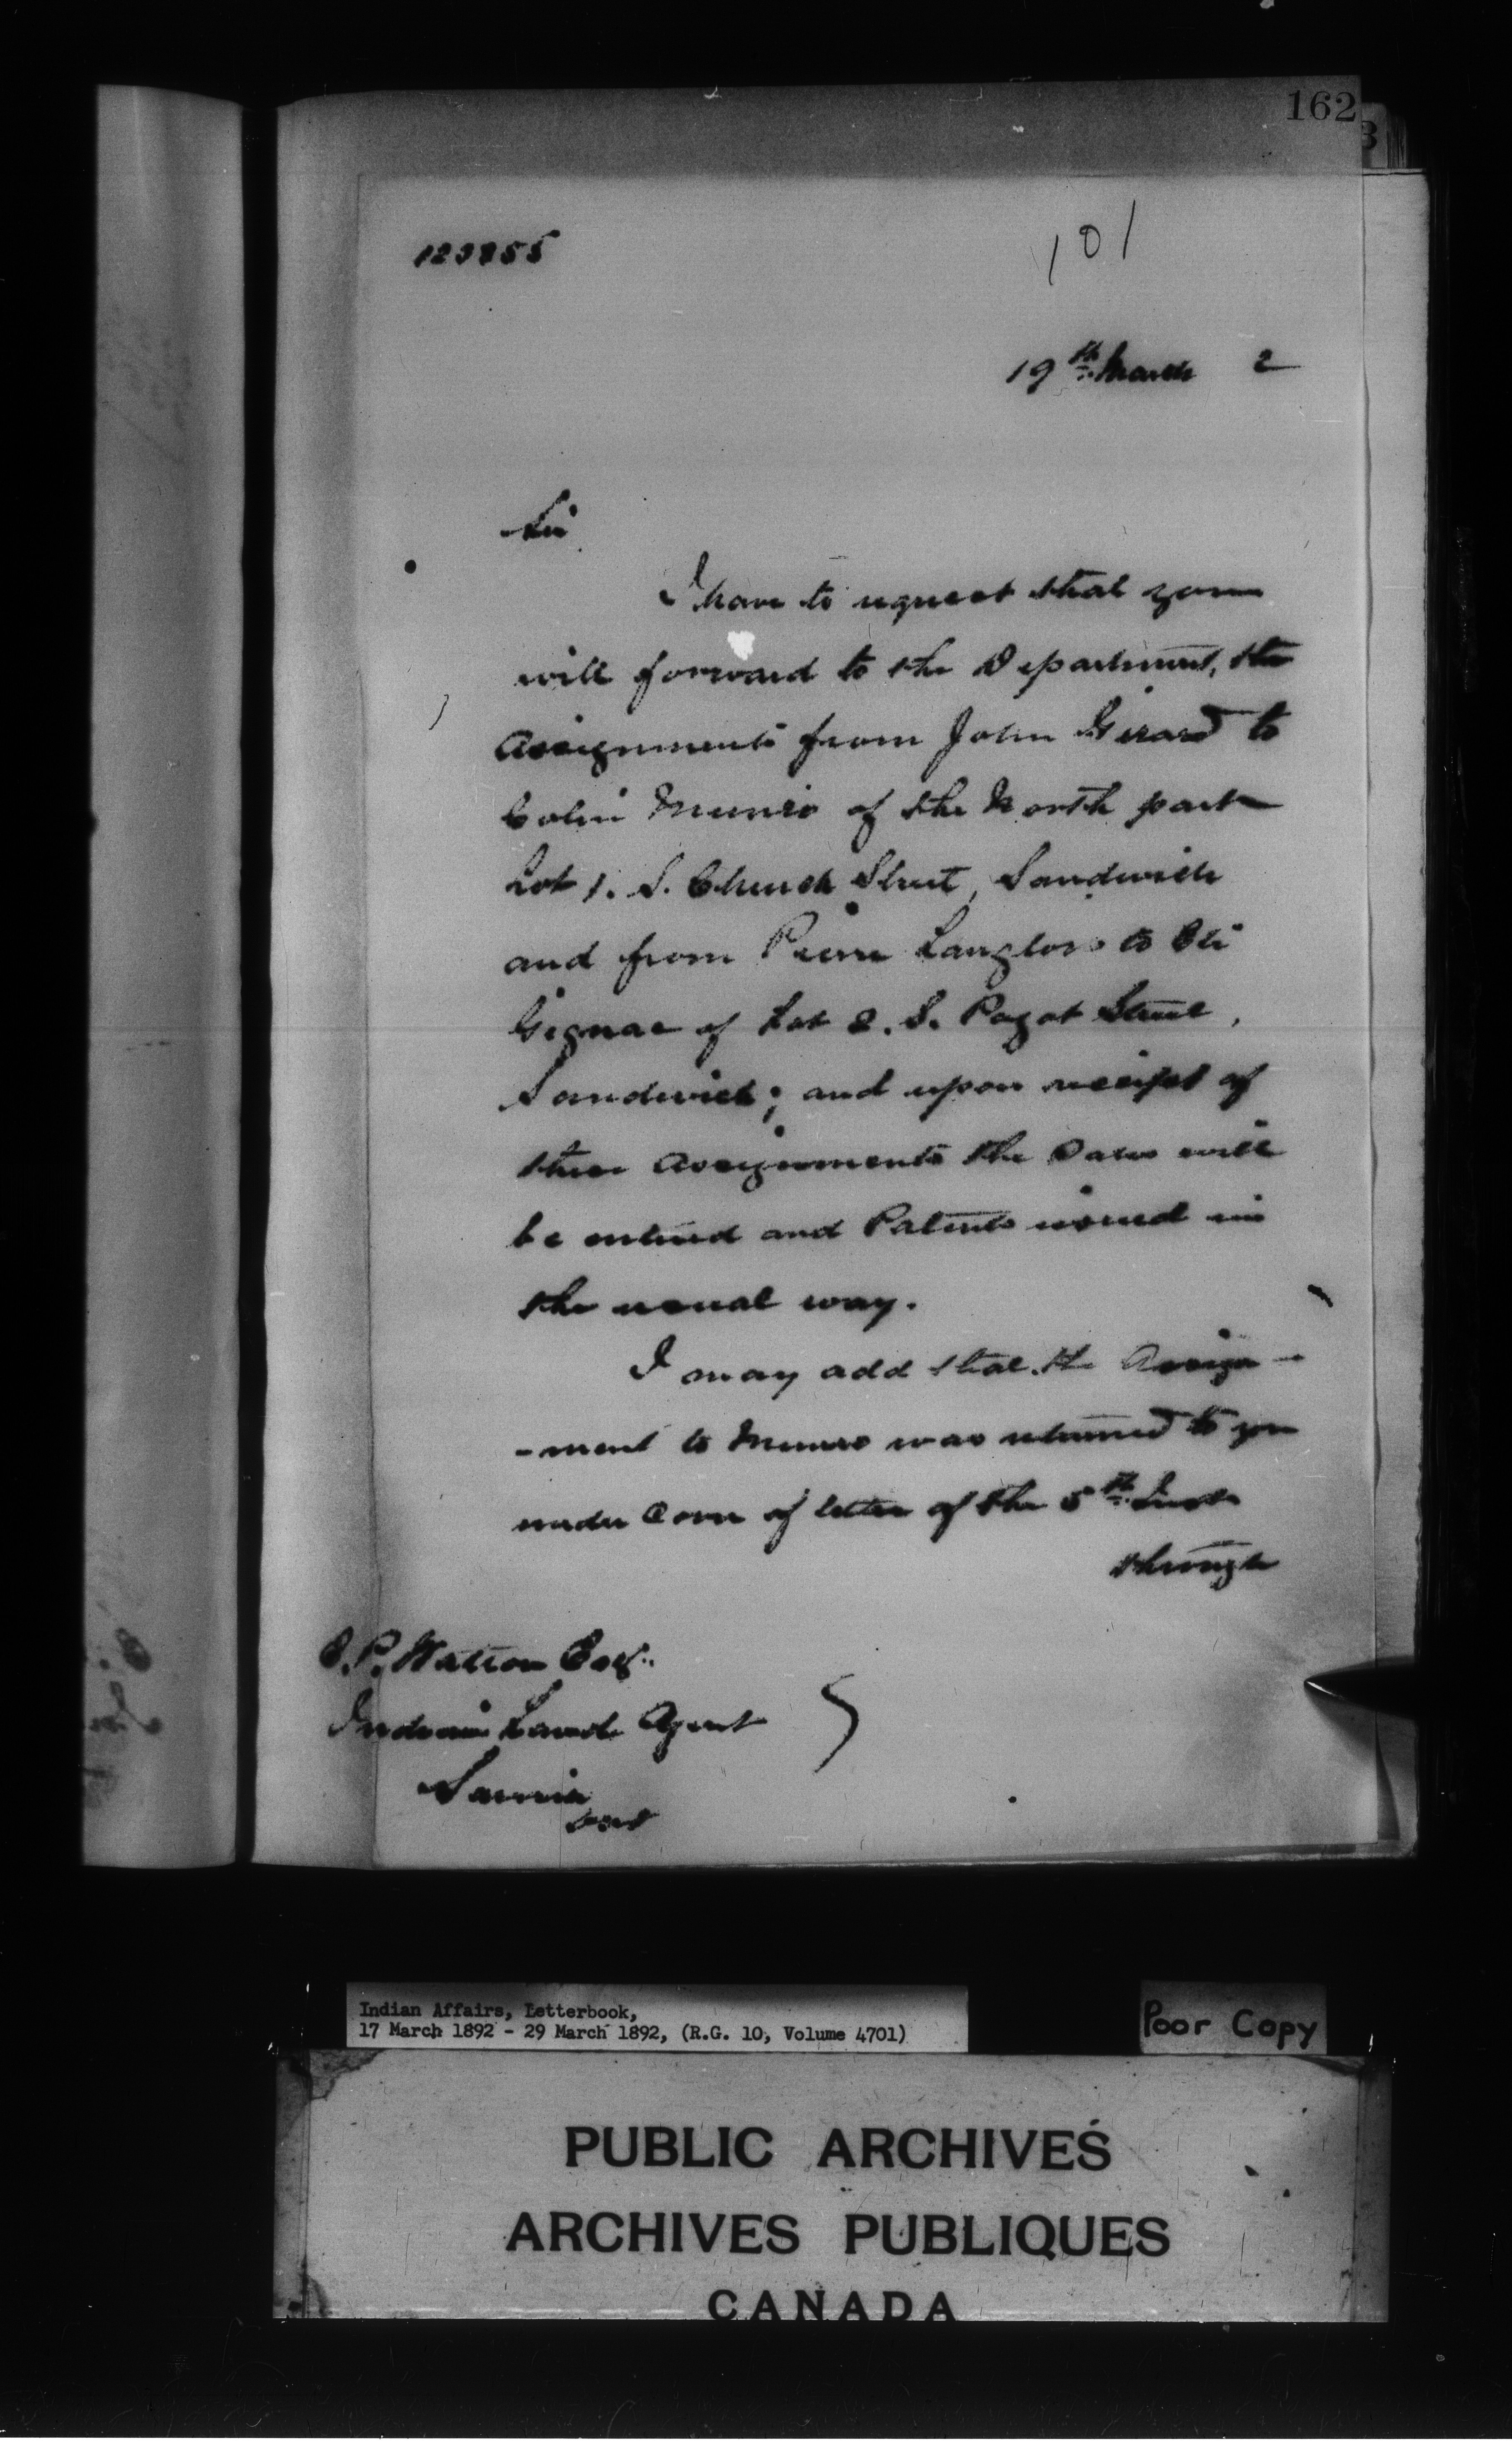 162
101
123855
19th March 2
Sir
I have to request that you
will forward to the Department, the
Assignments from John Girard to
Colin Munro of the North part
Lot 1. S. Church Street, Sandwich
and from Pierre Langlois to Eli
Gignac of Lot 2. S. Pagot Street,
Sandwich; and upon receipt of
these Assignments the Sales will
be entered and Patents issued in
the usual way.
I may add that the Assign-
-ment to Munro was returned to you
under cover of letter of the 5th Inst
through
Watson Esq.
Indian Land Agent
Sarnia
Ont
Indian Affairs, Letterbook,
17 March 1892 - 29 March 1892, (R.G. 10, Volume 4701)
Poor Copy
PUBLIC ARCHIVES
ARCHIVES PUBLIQUES
CANADA